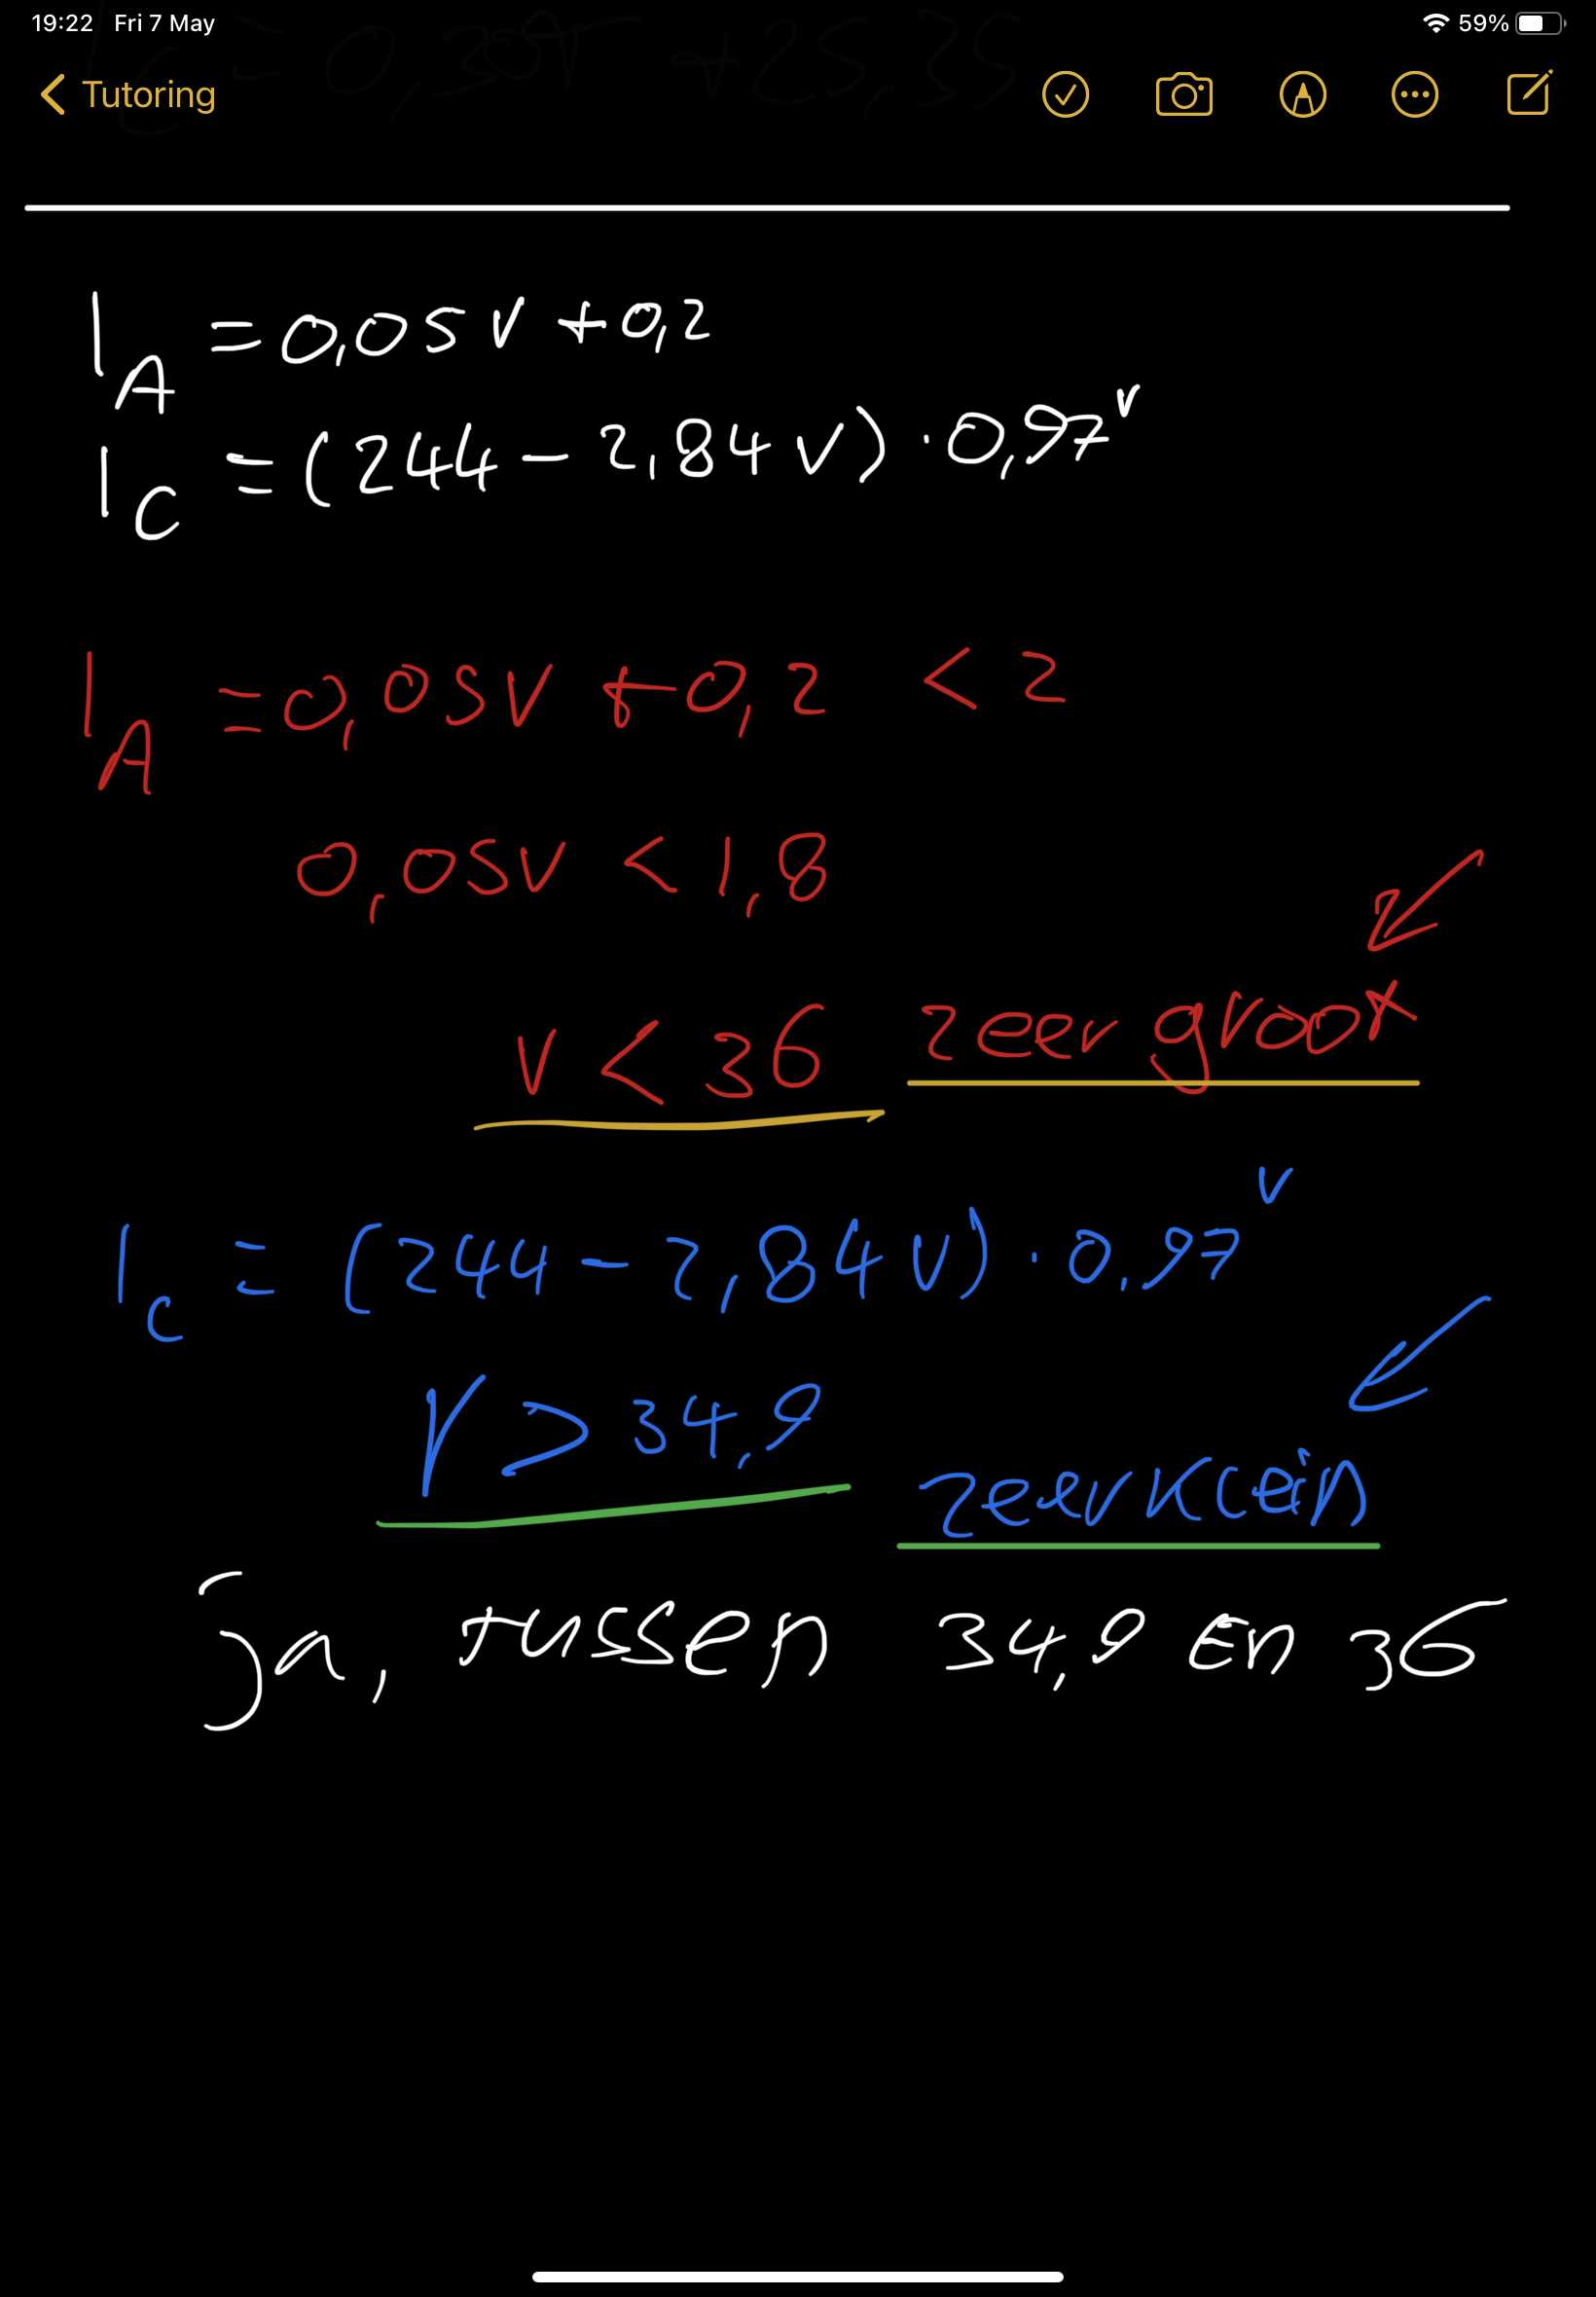 19:22 Fri 7 May 59%
Tutoring
I_A = 0,05 V + 0,2
I_C = (244 - 2,84 V) · 0,97^V
I_A = 0,05V + 0,2 < 2
0,05V < 1,8
V < 36 zeer groot
I_C = (244 - 2,84 V) · 0,97^V
V > 34,9
zeer klein
ja, tussen 34,9 En 36